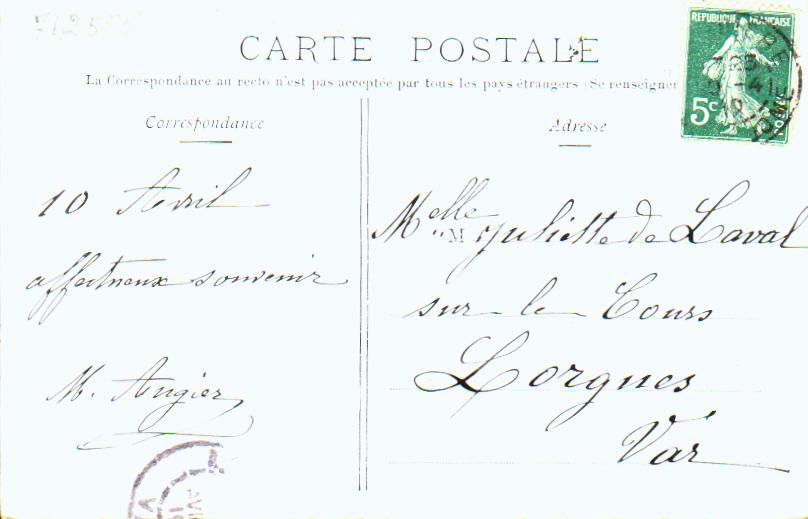 CARTE POSTALE
La Correspondance au recto n'est pas acceptée par tous les pays étrangers (Se renseigner
REPUBLIQUE FRANÇAISE
5c
Correspondance
10 Avril
affectueux souvenir
M. Augier
Adresse
Melle Juliette de Laval
M
sur le Cours
Lorgues
Var